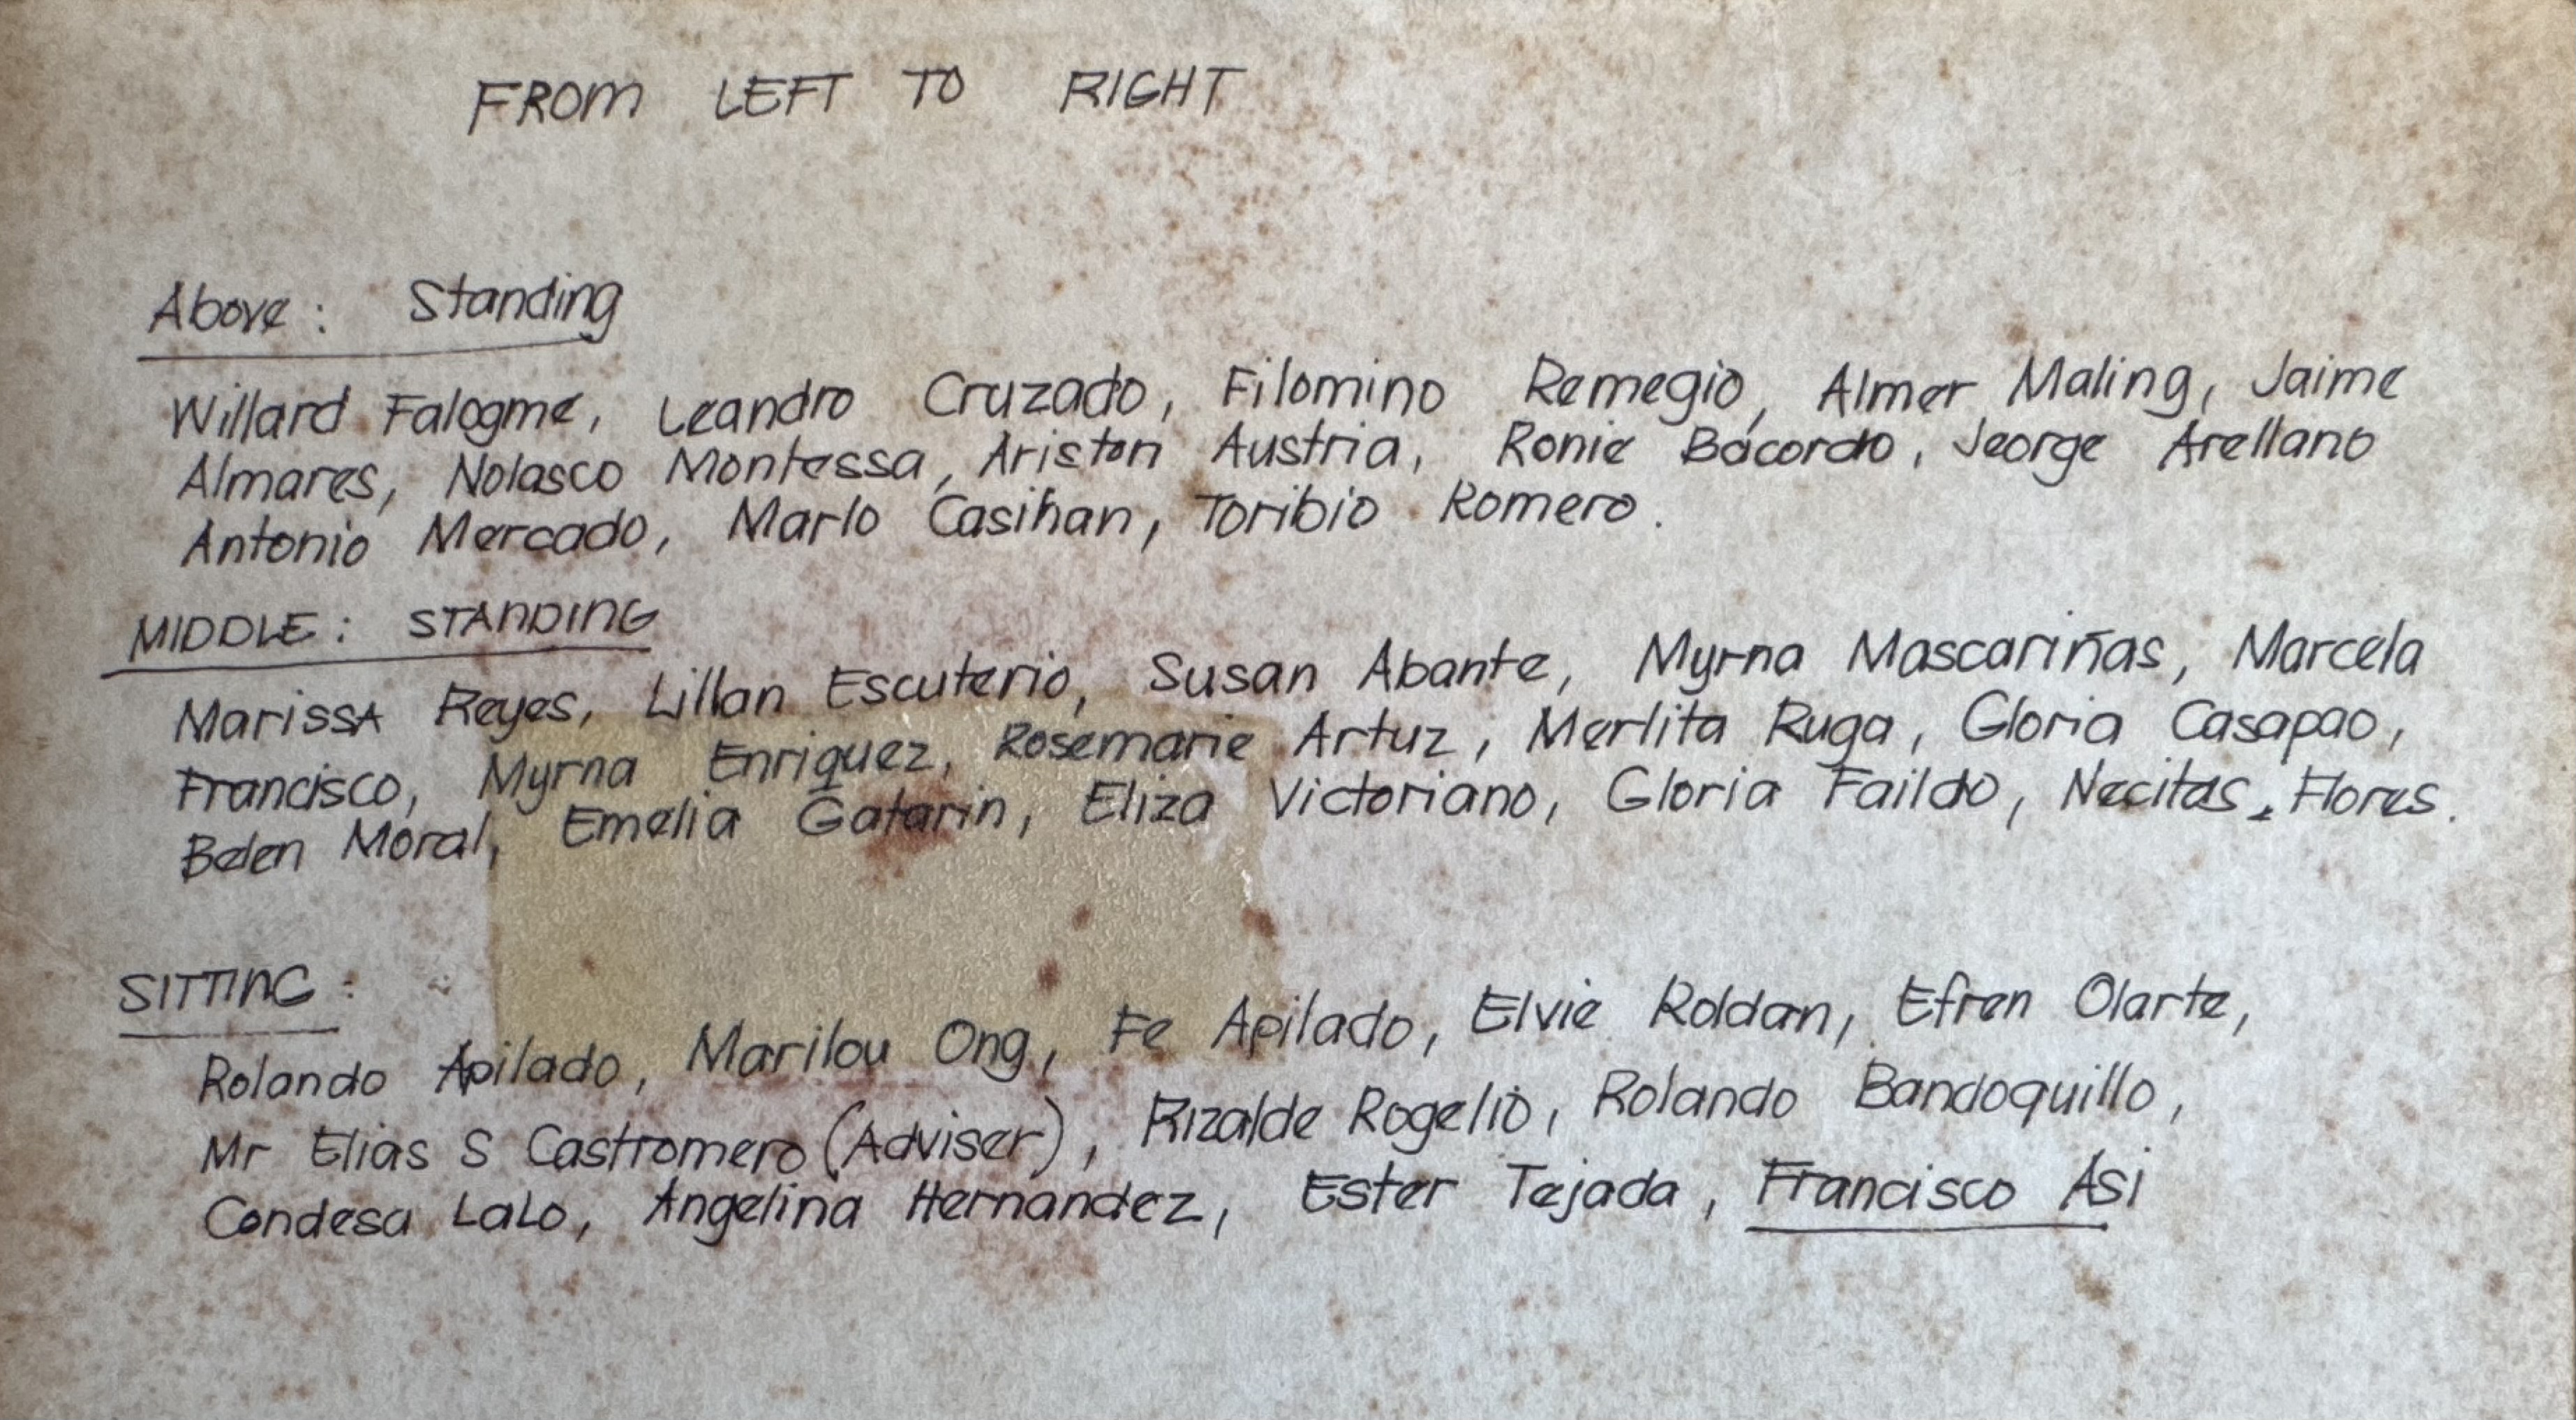 FROM LEFT TO RIGHT
Above: Standing
Willard Falogme, Leandro Cruzado, Filomino Remegio, Almer Maling, Jaime
Almares, Nolasco Montessa, Ariston Austria, Ronie Bacordo, Jeorge Arellano
Antonio Mercado, Marlo Casihan, Toribio Romero.
MIDDLE: STANDING
Marissa Reyes, Lillan Escuterio, Susan Abante, Myrna Mascariñas, Marcela
Francisco, Myrna Enriquez, Rosemarie Artuz, Merlita Ruga, Gloria Casapao,
Belen Moral, Emelia Gatarin, Eliza Victoriano, Gloria Faildo, Necitas, Flores.
SITTING:
Rolando Apilado, Marilou Ong, Fe Apilado, Elvie Roldan, Efren Olarte,
Mr Elias S Castromero (Adviser), Rizalde Rogelio, Rolando Bandoquillo,
Condesa LaLo, Angelina Hernandez, Ester Tejada, Francisco Asi